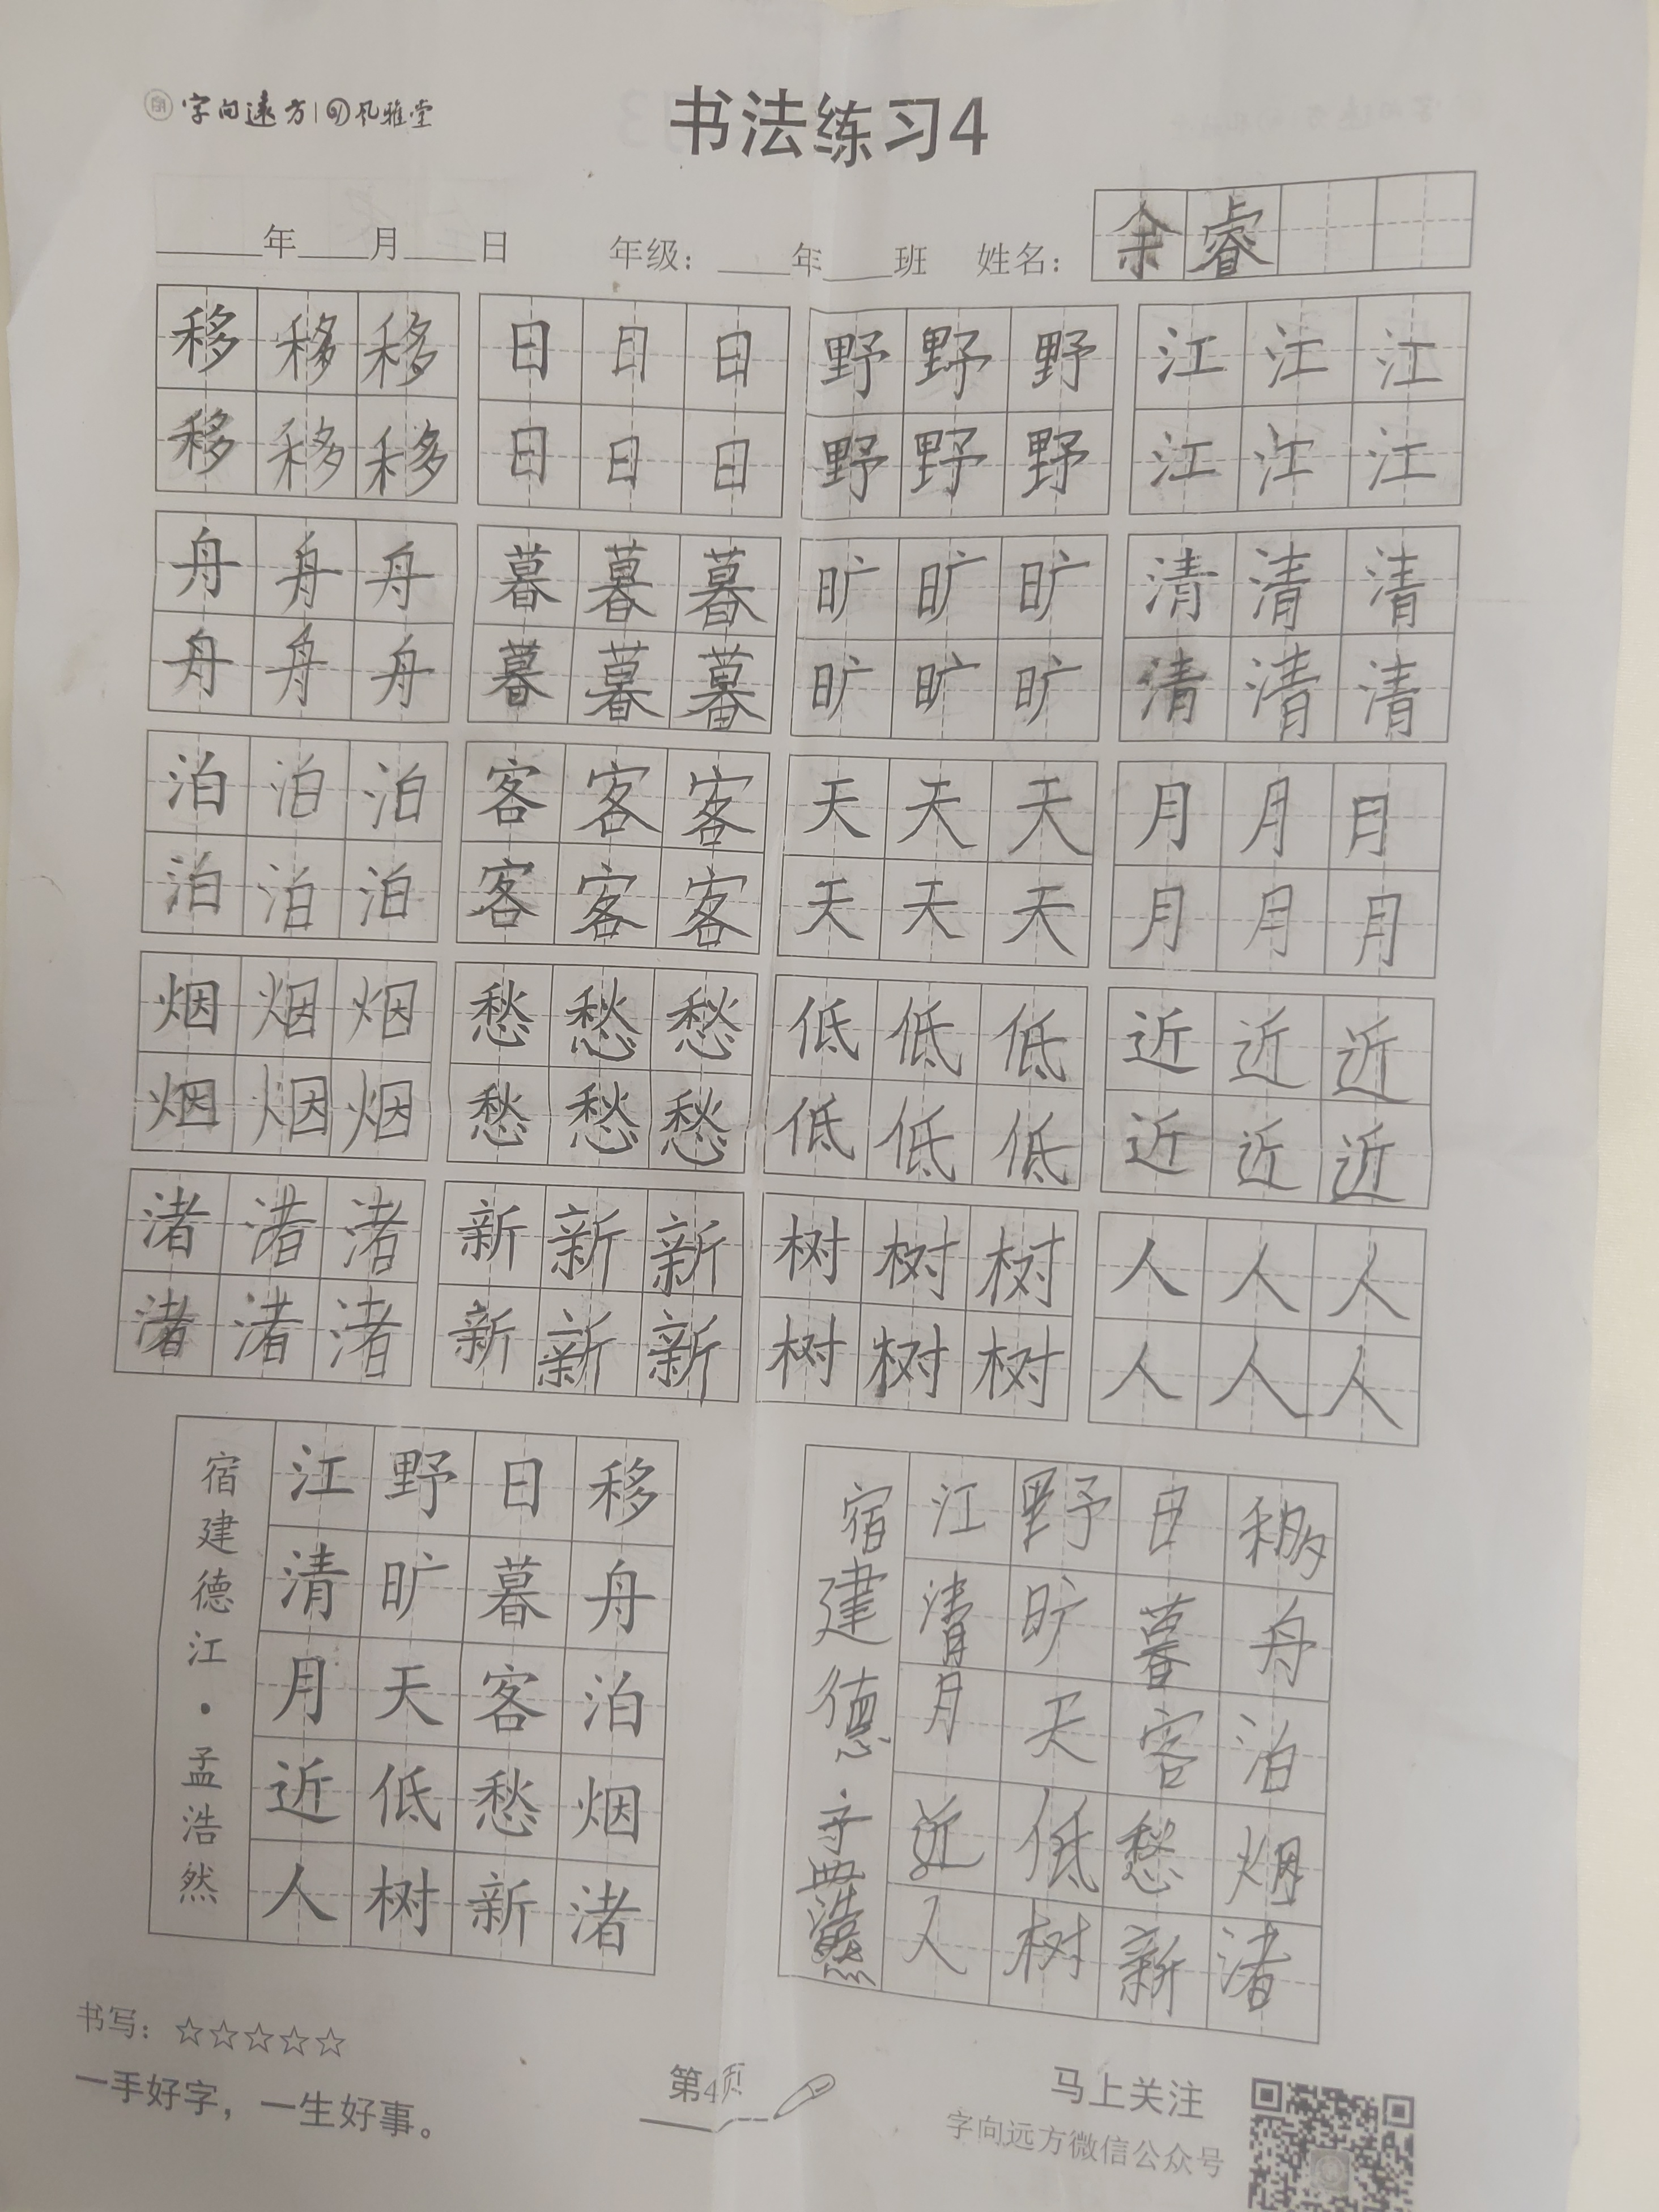 字向远方 风雅堂
书法练习4
年 月 日 年级： 年 班 姓名： 余睿
移移移 日日日 野野野 江江江
移移移 日日日 野野野 江江江
舟舟舟 暮暮暮 旷旷旷 清清清
舟舟舟 暮暮暮 旷旷旷 清清清
泊泊泊 客客客 天天天 月月月
泊泊泊 客客客 天天天 月月月
烟烟烟 愁愁愁 低低低 近近近
烟烟烟 愁愁愁 低低低 近近近
渚渚渚 新新新 树树树 人人人
渚渚渚 新新新 树树树 人人人
移舟泊烟渚
日暮客愁新
野旷天低树
江清月近人
宿建德江·孟浩然
移舟泊烟渚
日暮客愁新
野旷天低树
江清月近人
宿建德江·孟浩然
书写：☆☆☆☆☆
一手好字，一生好事。
第4页
马上关注
字向远方微信公众号